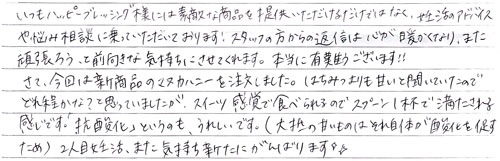 いつもハッピーブレッシング様には素敵な商品を提供いただけるだけではなく、妊活のアドバイス
や悩み相談に乗っていただいております! スタッフの方からの返信は心が暖かくなり、また
頑張ろう、と前向きな気持ちにさせてくれます。本当に有難うございます!!
さて、今回は新商品のマヌカハニーを注文しました。はちみつよりも甘いと聞いていたので
どれ程かな?と思っていましたが、スイーツ感覚で食べられるのでスプーン1杯で満たされる
感じです。「抗酸化」というのも、うれしいです。(大抵の甘いものはそれ自体が酸化を促す
ため) 2人目妊活、また気持ち新たにがんばります☆